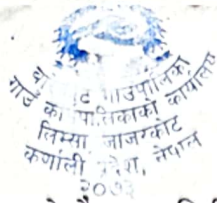 गाउँ
गाउपालिका
कार्यालय
लिम्सा जाजरकोट
कर्णाली प्रदेश, नेपाल
२०७३